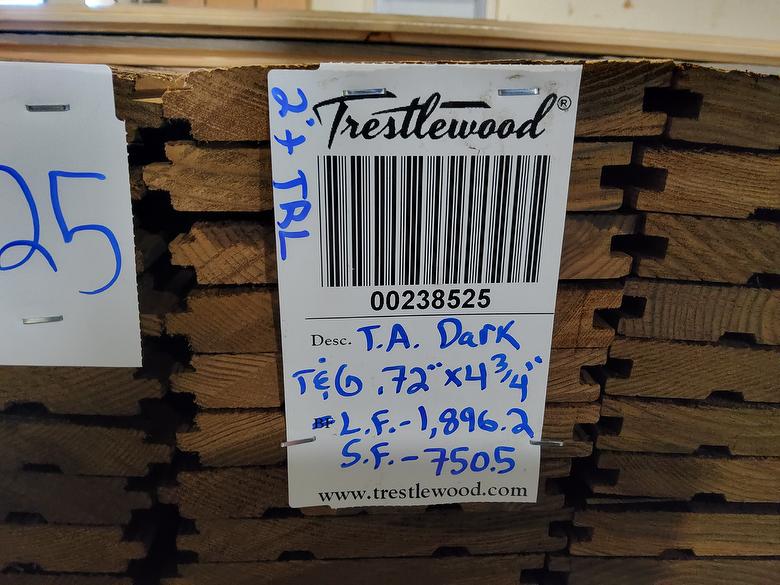 25
2'+ TRL
Trestlewood®
00238525
Desc. T.A. Dark
T&G .72" x 4 3/4"
BF L.F. - 1,896.2
S.F. - 750.5
www.trestlewood.com